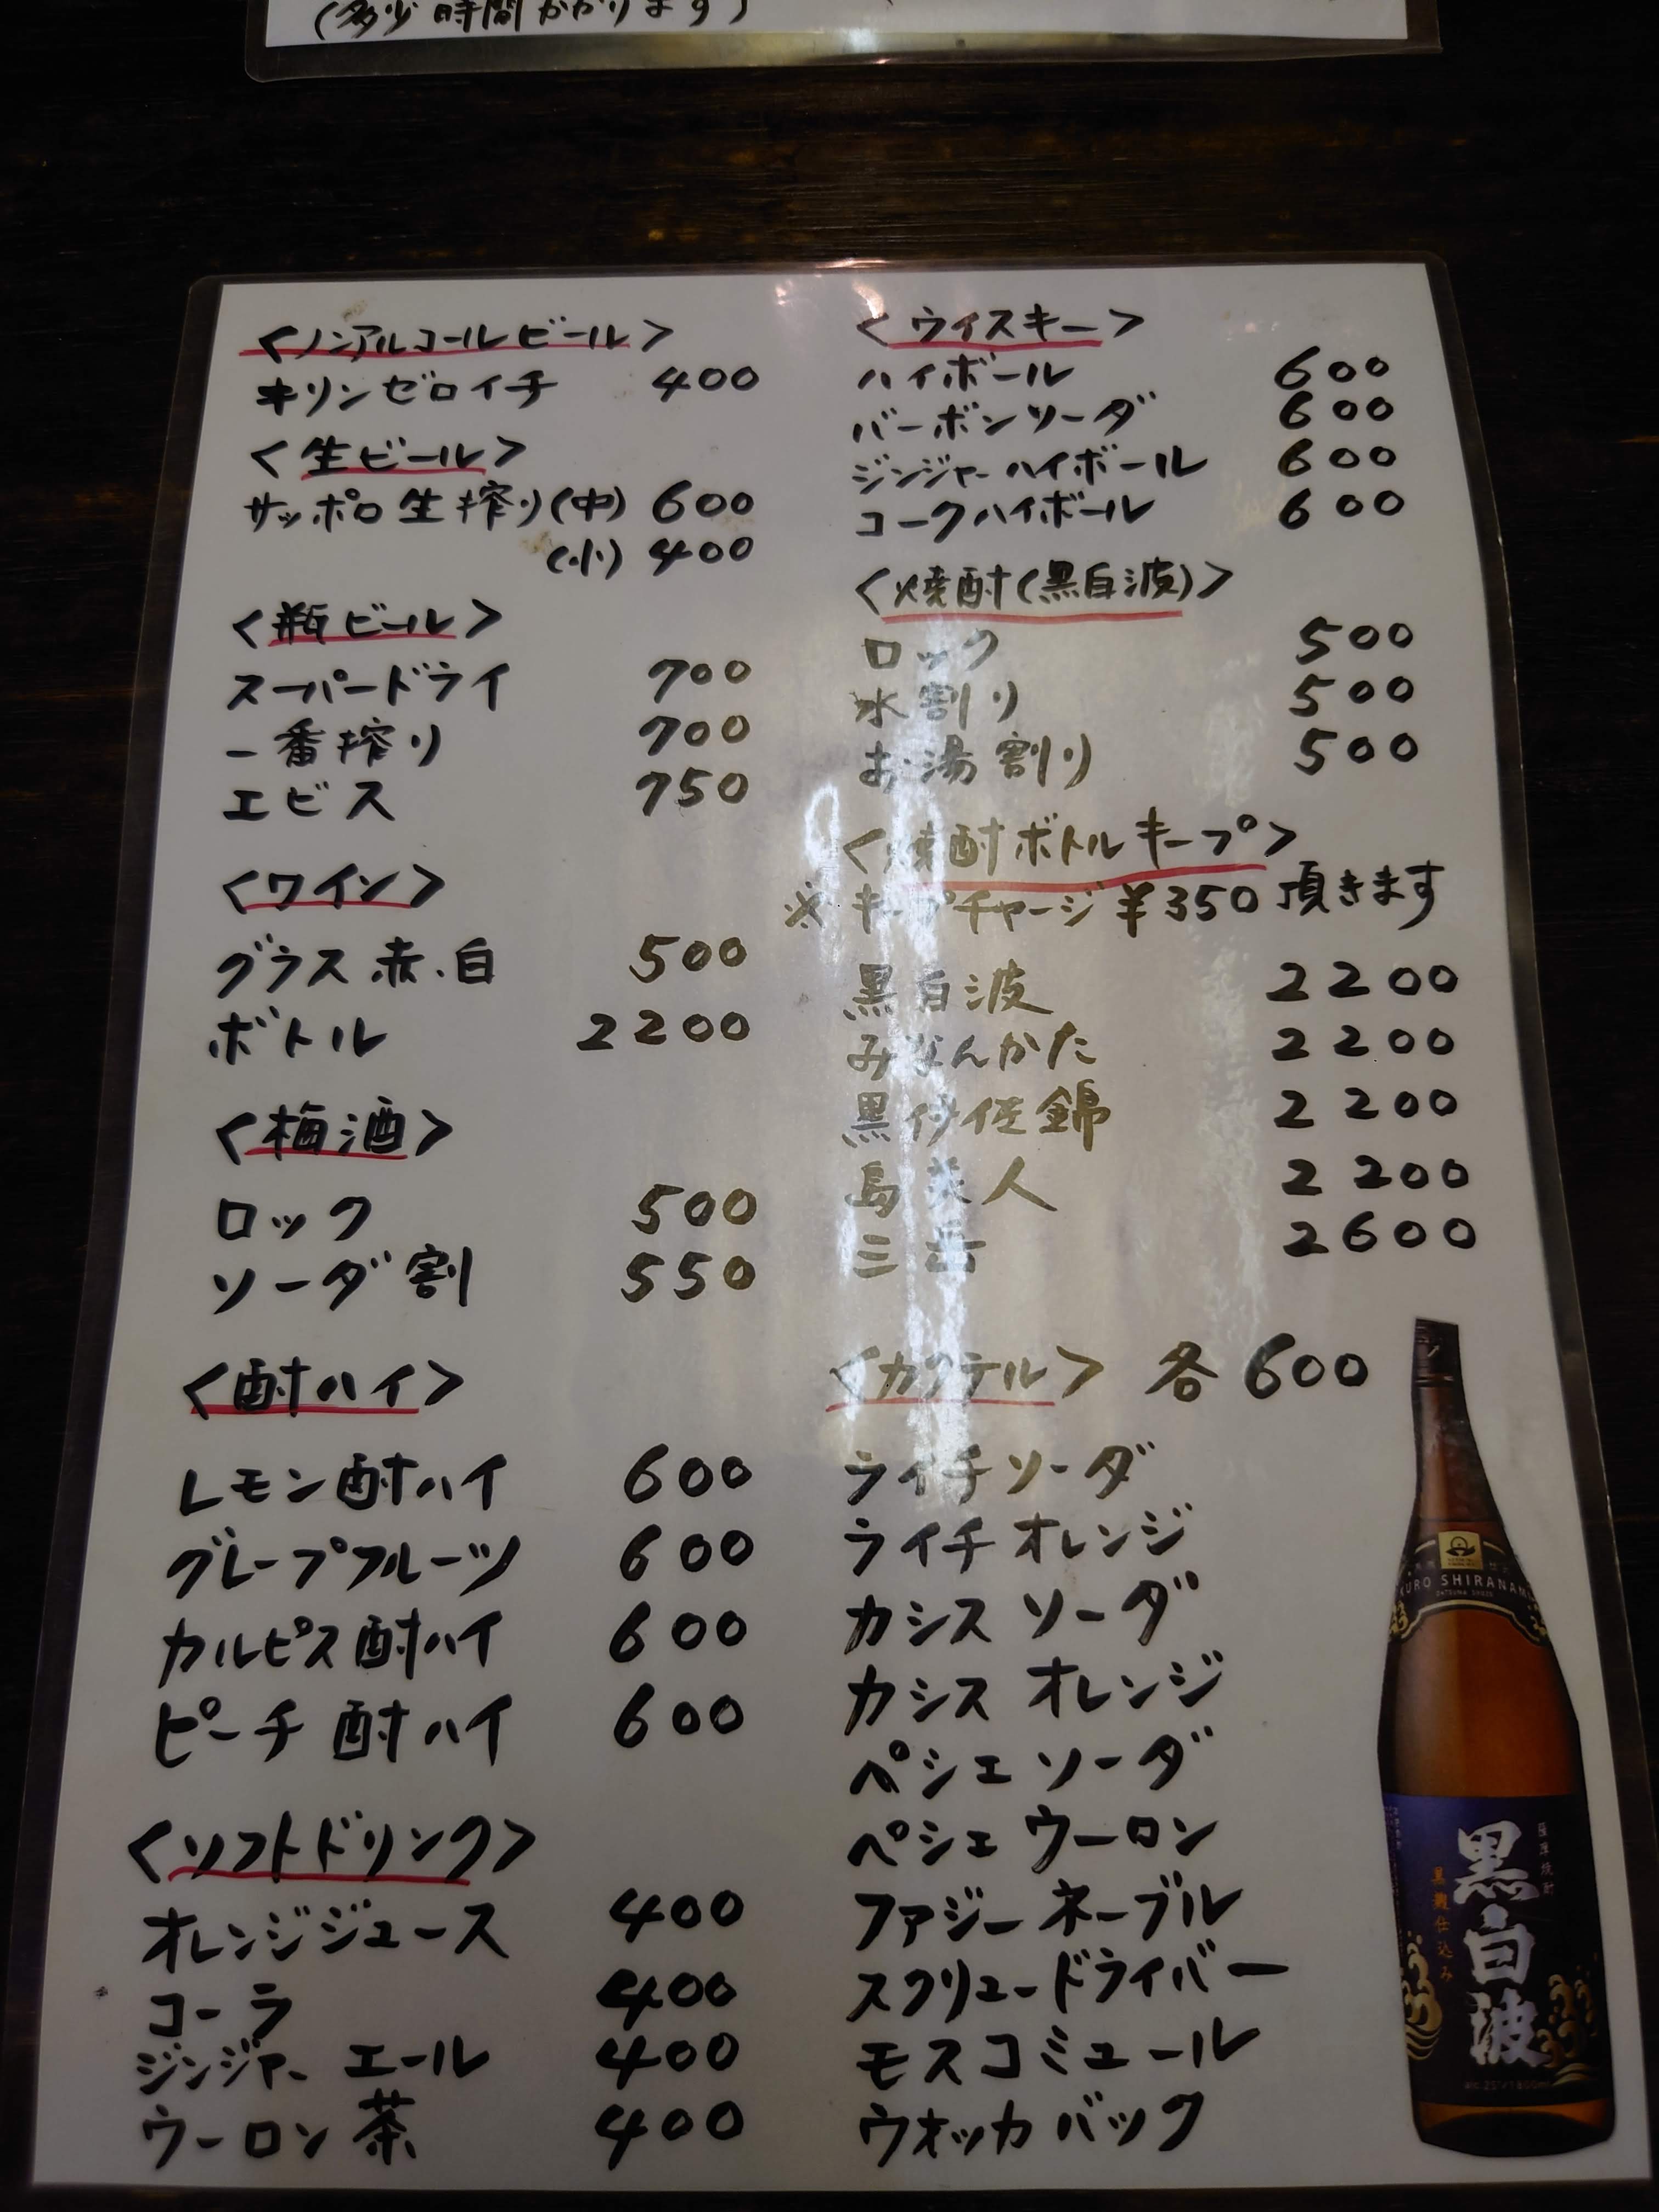 (多少時間かかります)
<ノンアルコールビール>
キリンゼロイチ 400
<生ビール>
サッポロ生搾り(中) 600
(小) 400
<瓶ビール>
スーパードライ 700
一番搾り 700
エビス 750
<ワイン>
グラス 赤・白 500
ボトル 2200
<梅酒>
ロック 500
ソーダ割 550
<酎ハイ>
レモン酎ハイ 600
グレープフルーツ 600
カルピス酎ハイ 600
ピーチ酎ハイ 600
<ソフトドリンク>
オレンジジュース 400
コーラ 400
ジンジャーエール 400
ウーロン茶 400
<ウイスキー>
ハイボール 600
バーボンソーダ 600
ジンジャーハイボール 600
コークハイボール 600
<焼酎(黒白波)>
ロック 500
水割り 500
お湯割り 500
<焼酎ボトルキープ>
※キープチャージ¥350頂きます
黒白波 2200
みなんかた 2200
黒伊佐錦 2200
島美人 2200
三岳 2600
<カクテル> 各600
ライチソーダ
ライチオレンジ
カシスソーダ
カシスオレンジ
ペシェソーダ
ペシェウーロン
ファジーネーブル
スクリュードライバー
モスコミュール
ウオッカバック
KURO SHIRANAMI
SATSUMA SHOZO
薩摩焼酎
黒麹仕込み
黒白波
alc.25°/1800ml